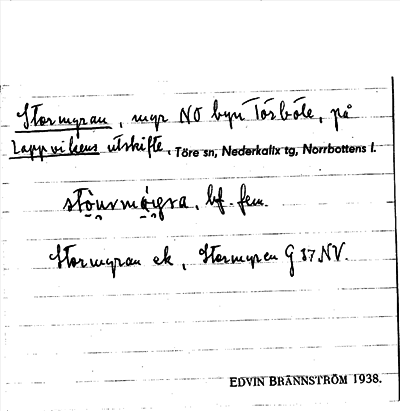 Stormyran, myr NO byn Törböle, på
Lappvikens utskifte. Töre sn, Nederkalix tg, Norrbottens l.
bf. fem.
Stormyran ek, Stormyren G 37 NV.
EDVIN BRÄNNSTRÖM 1938.